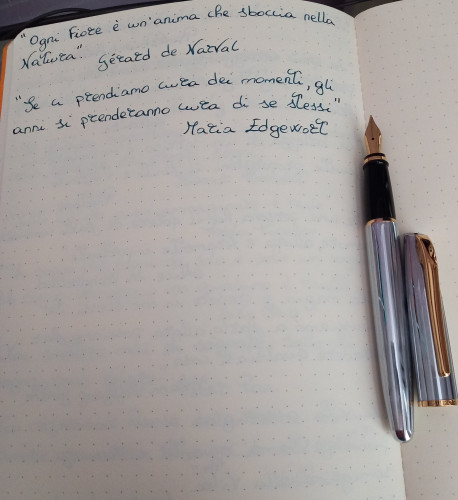 "Ogni Fiore è un'anima che sboccia nella
Natura". Gérard de Narval
"Se ci prendiamo cura dei momenti, gli
anni si prenderanno cura di se stessi"
Maria Edgewort